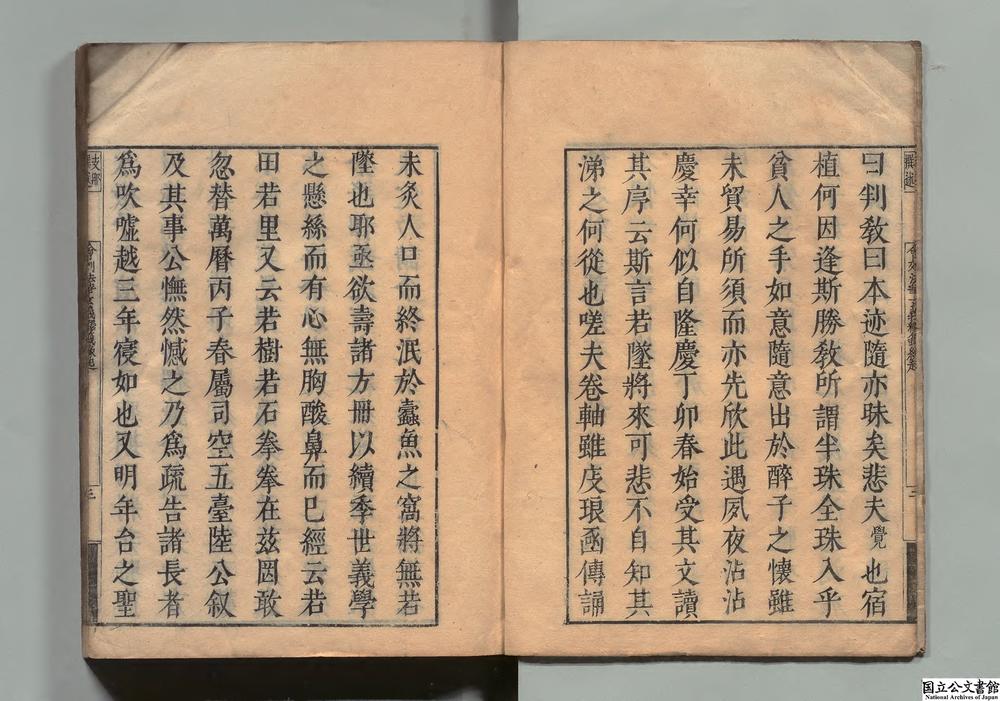 曰判教曰本迹隨亦昧矣悲夫覺也宿
植何因逢斯勝教所謂半珠全珠入乎
貧人之手如意隨意出於醉子之懷雖
未貿易所須而亦先欣此遇夙夜沾沾
慶幸何似自隆慶丁卯春始受其文讀
其序云斯言若墜將來可悲不自知其
涕之何從也嗟夫卷軸雖庋琅函傳誦
未炙人口而終泯於蠹魚之窩將無若
墜也耶亟欲壽諸方冊以續季世義學
之懸絲而有心無胸酸鼻而巳經云若
田若里又云若樹若石拳拳在茲罔敢
忽替萬曆丙子春屬司空五臺陸公叙
及其事公憮然憾之乃爲疏告諸長者
爲吹噓越三年寖如也又明年台之聖
三
国立公文書館
National Archives of Japan